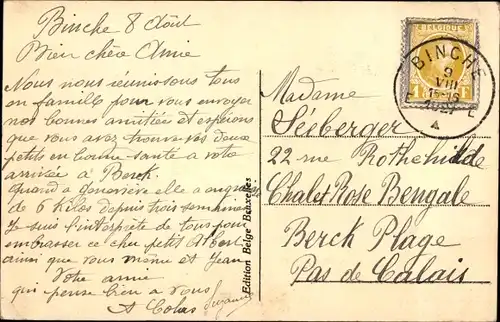 Binche 8 Août
Bien chère Amie
Nous nous réunissons tous
en famille pour vous envoyer
nos bonnes amitiées et espérons
que vous avez trouvé vos deux
petits en bonne santé a votre
arrivée à Berck.
Quand a Geneviève elle a augmenté
de 6 kilos depuis trois semaines
Je suis l'interprète de tous pour
embrasser ce cher petit Albert
ainsi que vous même et Jean
Votre amie
qui pense bien a vous
A Colas
Edition Belge Bruxelles
BELGIQUE
BINCHE
9
VIII
1927
Madame
Séeberger
22 rue Rothchilde
Chalet Rose Bengale
Berck Plage
Pas de Calais